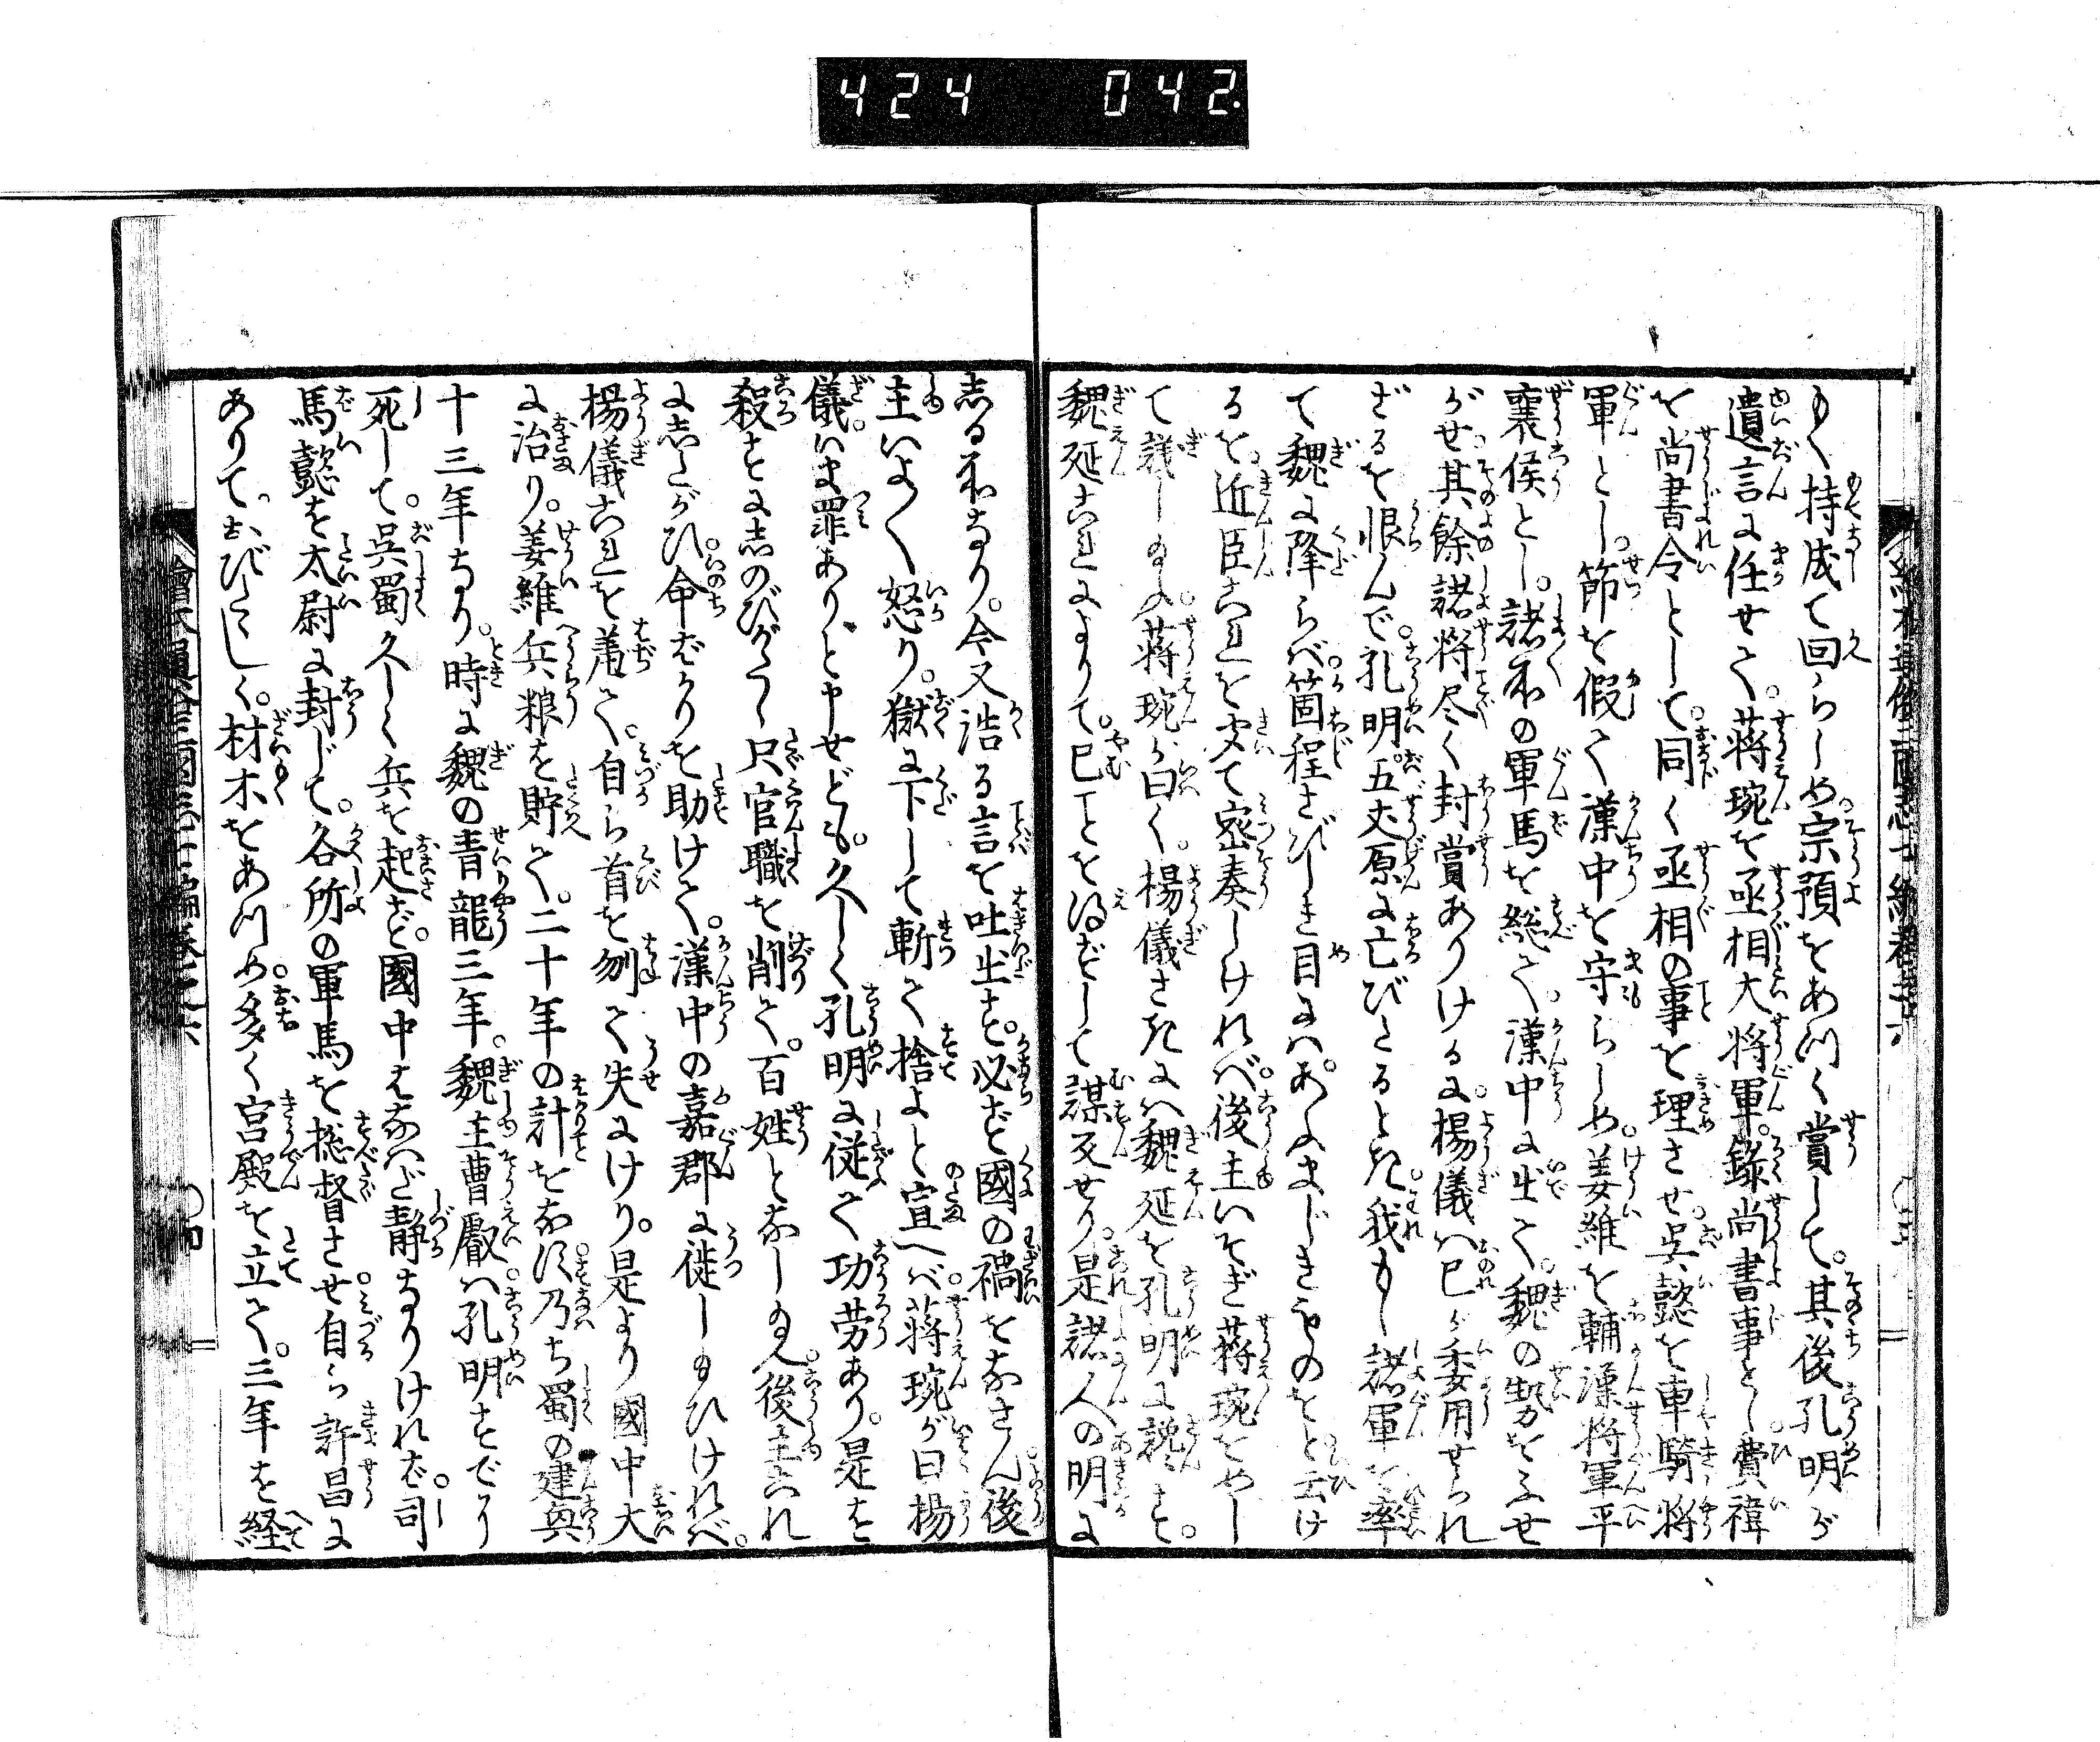 424 042.
もく持成て回らしめ宗預をあつく賞して。其後孔明が
遺言に任せて。蔣琬を丞相大将軍。錄尚書事とし費禕
を尚書令として。同く丞相の事を理させ呉懿を車騎将
軍とし。節を假て漢中を守らしめ。姜維を輔漢将軍平
襄侯とし。諸処の軍馬を総て。漢中に出て。魏の勢をふせ
がせ其餘諸将尽く封賞ありけるに楊儀ハ已が委用せられ
ざるを恨んで。孔明五丈原に亡びたるとき我もし諸軍を率
て魏に降らバ箇程さびしき目にハ。あふまじきものをと云け
るを。近臣これを聞て密奏しけれバ。後主いそぎ蔣琬をめし
て議し給ふ。蔣琬が曰く。楊儀さきにハ魏延を孔明に讒す。
魏延これによりて。已ことを得ずして謀反せり。是諸人の明に
しる処なり。今又浩る言を吐出す。必ず國の禍をなさん後
主いよ〱怒り。獄に下して斬て捨よと宣へバ。蔣琬が曰楊
儀。いま罪ありと申せども。久しく孔明に従て功労あり。是を
殺すに忍のびがたし只官職を削て。百姓となし給へ。後主これ
にしたがひ。命ばかりを助けて。漢中の嘉郡に徙し給ひけれバ。
楊儀これを羞て。自ら首を刎て失にけり。是より國中大
に治り。姜維兵粮を貯て。二十年の計をなす。乃ち蜀の建興
十三年なり。時に魏の青龍三年。魏主曹叡ハ孔明すでに
死して。呉蜀久しく兵を起さず。國中もなハだ静なりければ。司
馬懿を太尉に封じて。各所の軍馬を総督させ。自ら許昌に
ありて。おびたゝしく。材木をあつめ。多く宮殿を立て。三年を経